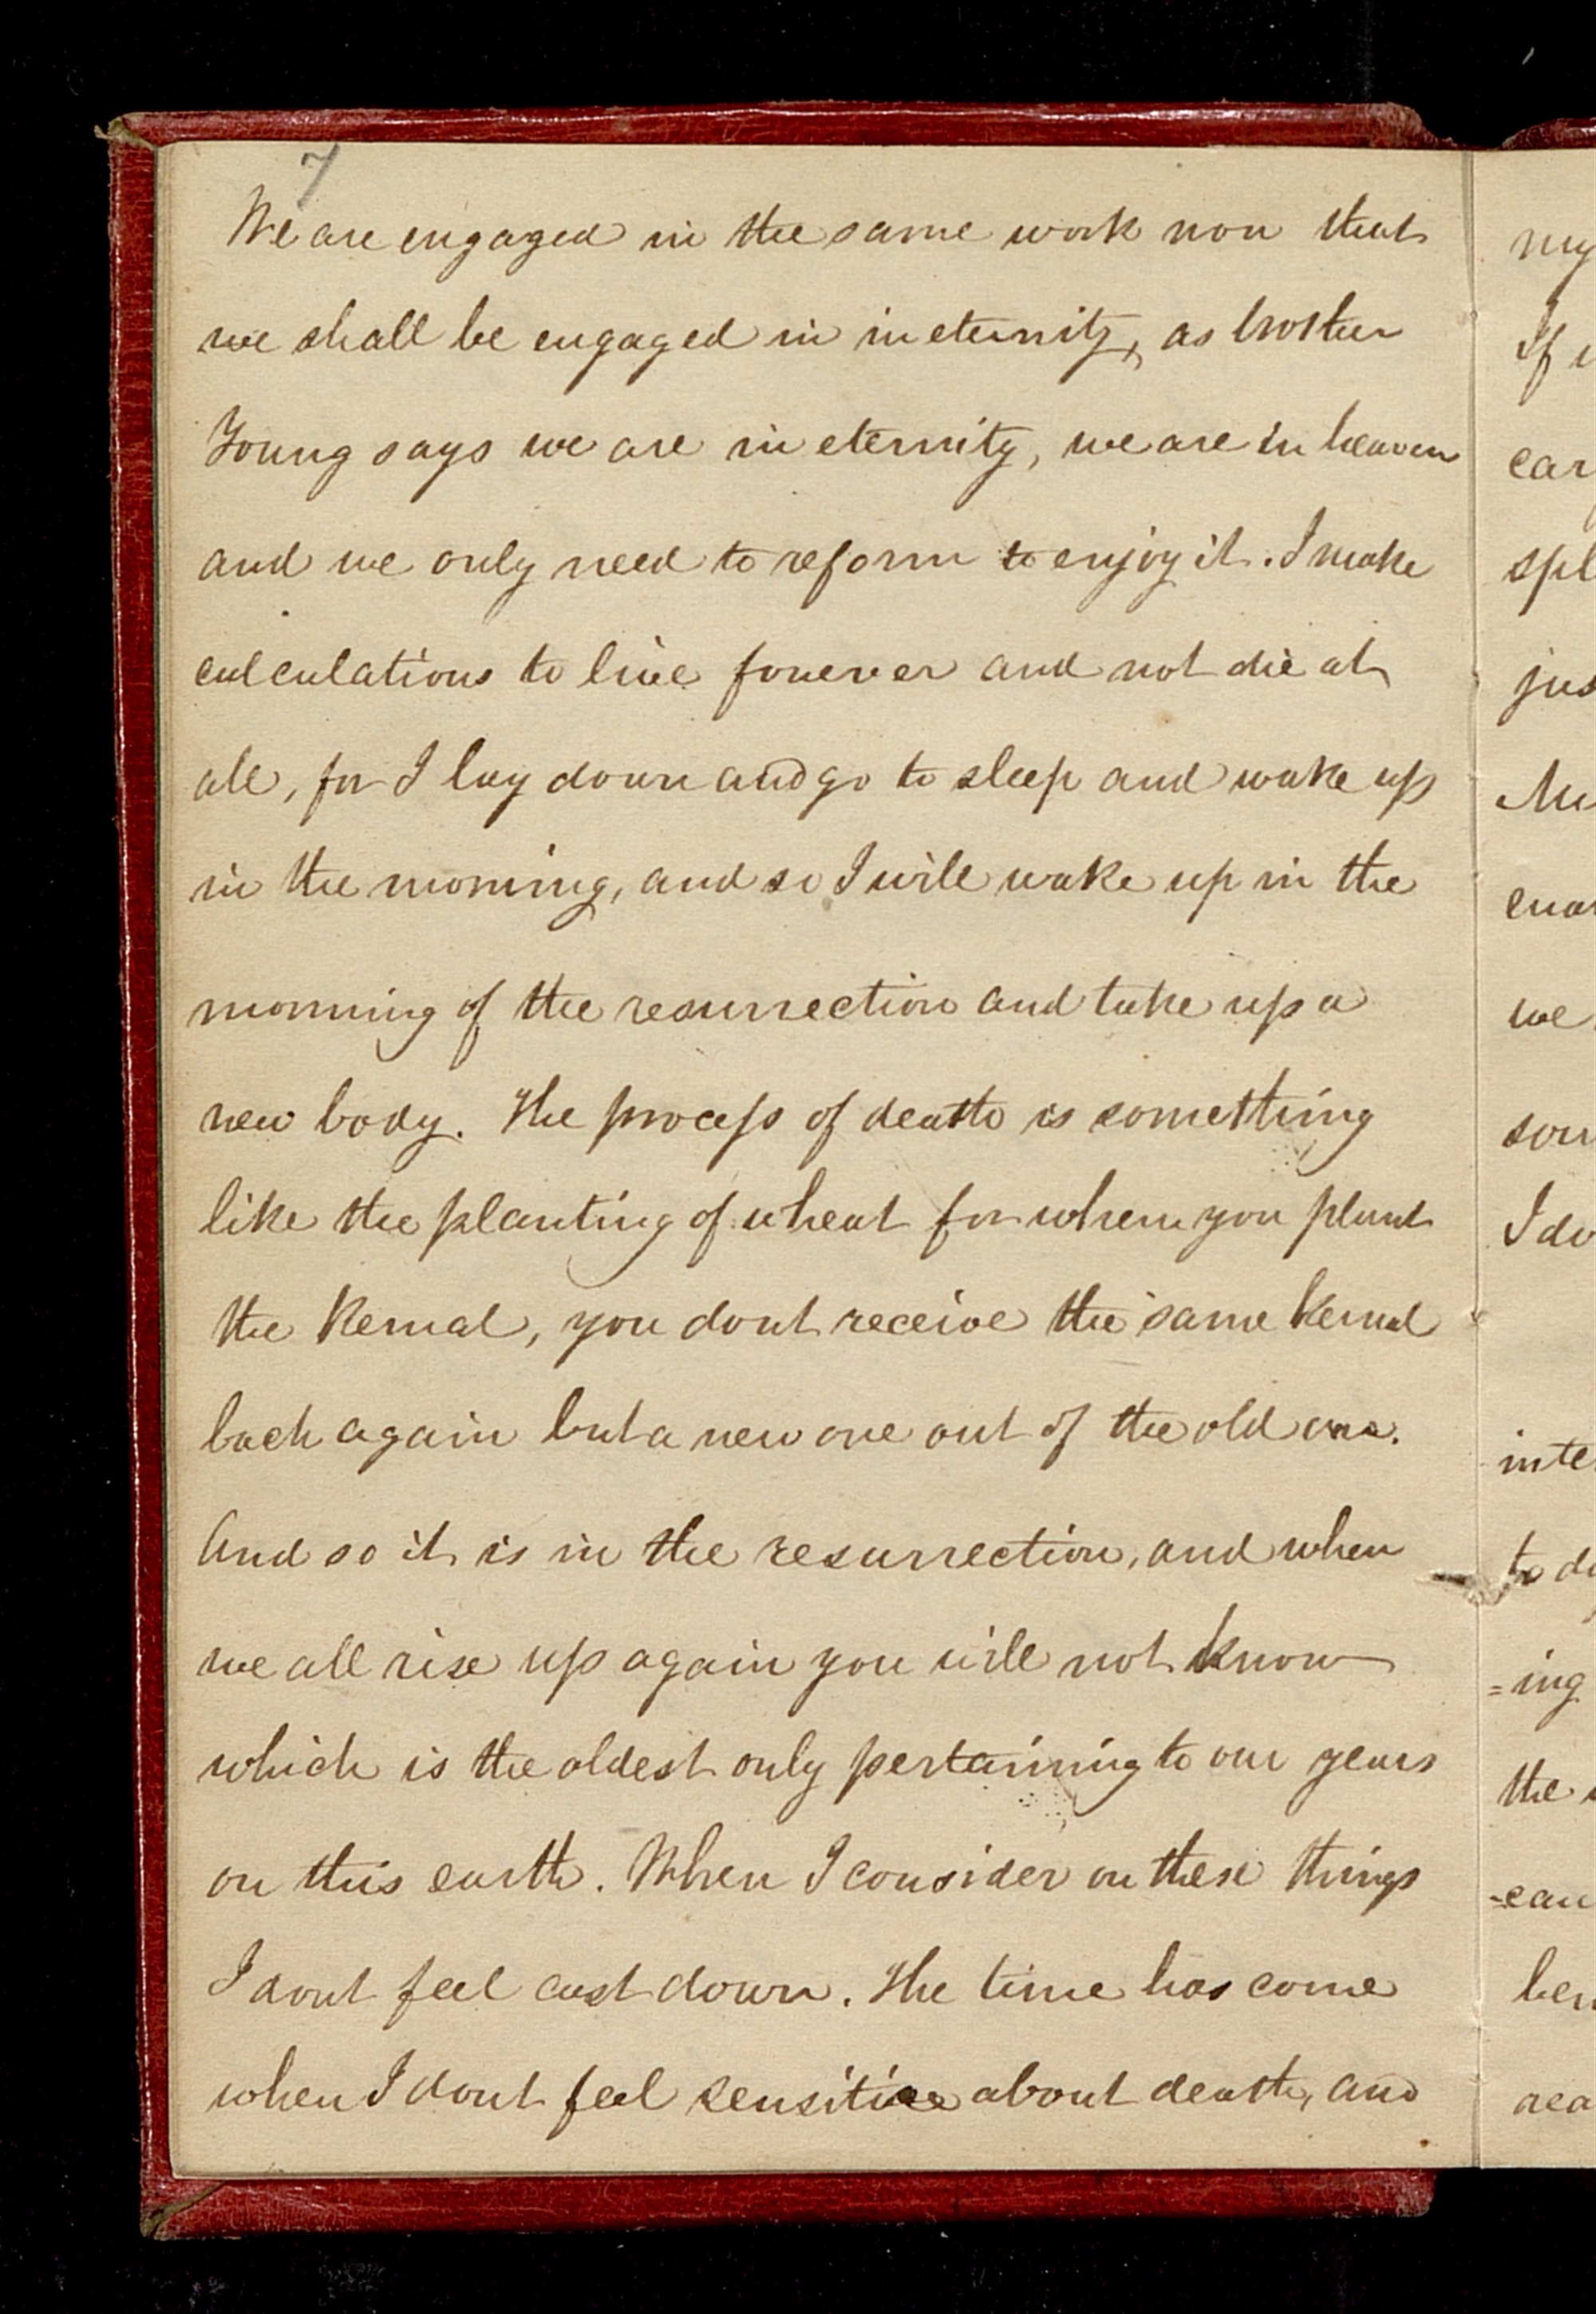 7
We are engaged in the same work now that
we shall be engaged in in eternity, as brother
Young says we are in eternity, we are in heaven
and we only need to reform to enjoy it. I make
calculations to live forever and not die at
all, for I lay down and go to sleep and wake up
in the morning, and so I will wake up in the
morning of the resurrection and take up a
new body. The process of death is something
like the planting of wheat for when you plant
the Kernal, you dont receive the same kernal
back again but a new one out of the old one.
And so it is in the resurrection, and when
we all rise up again you will not know
which is the oldest only pertaining to our years
on this earth. When I consider on these things
I dont feel cast down. The time has come
when I dont feel sensitive about death, and
my
If
ear
spl
jus
we
sou
I do
inte
to
=ing
the